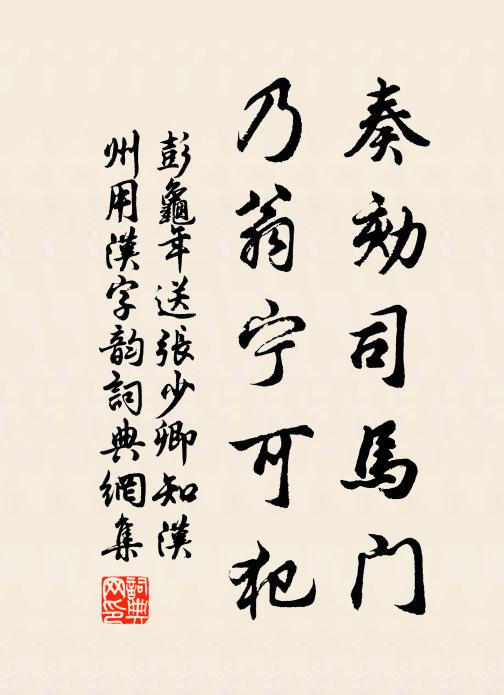 奏劾司馬門
乃翁宁可犯
彭龜年送張少卿知漢
州用漢字韵詞典網集
詞典
网印